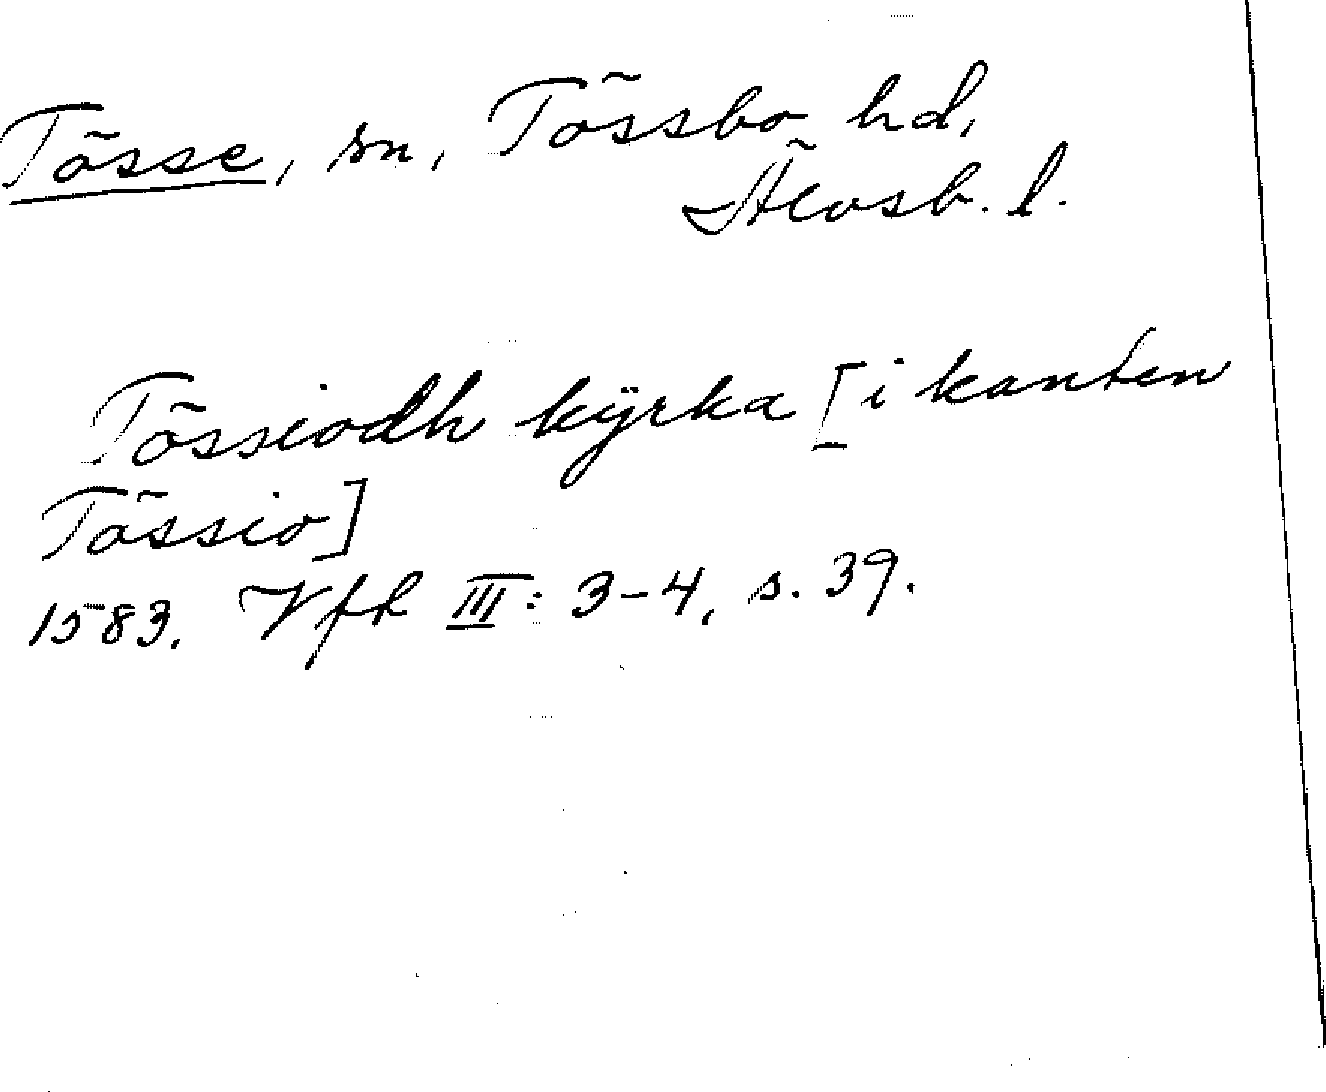 Tösse, sn, Tössbo hd,
Älvsb. l.
Tössiodh kÿrka [i kanten
Tössio]
1583. Vfh III: 3-4, s. 39.